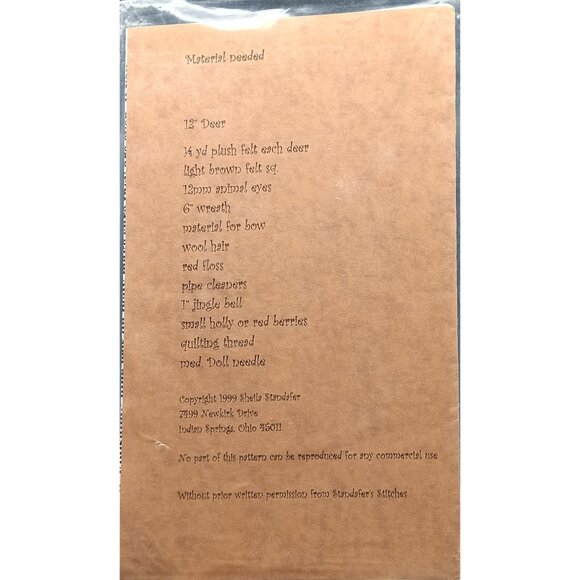 Material needed
12" Deer
¼ yd plush felt each deer
light brown felt sq.
12mm animal eyes
6" wreath
material for bow
wool hair
red floss
pipe cleaners
1" jingle bell
small holly or red berries
quilting thread
med. Doll needle
Copyright 1999 Sheila Standafer
7499 Newkirk Drive
Indian Springs, Ohio 45011
No part of this pattern can be reproduced for any commercial use
Without prior written permission from Standafer's Stitches